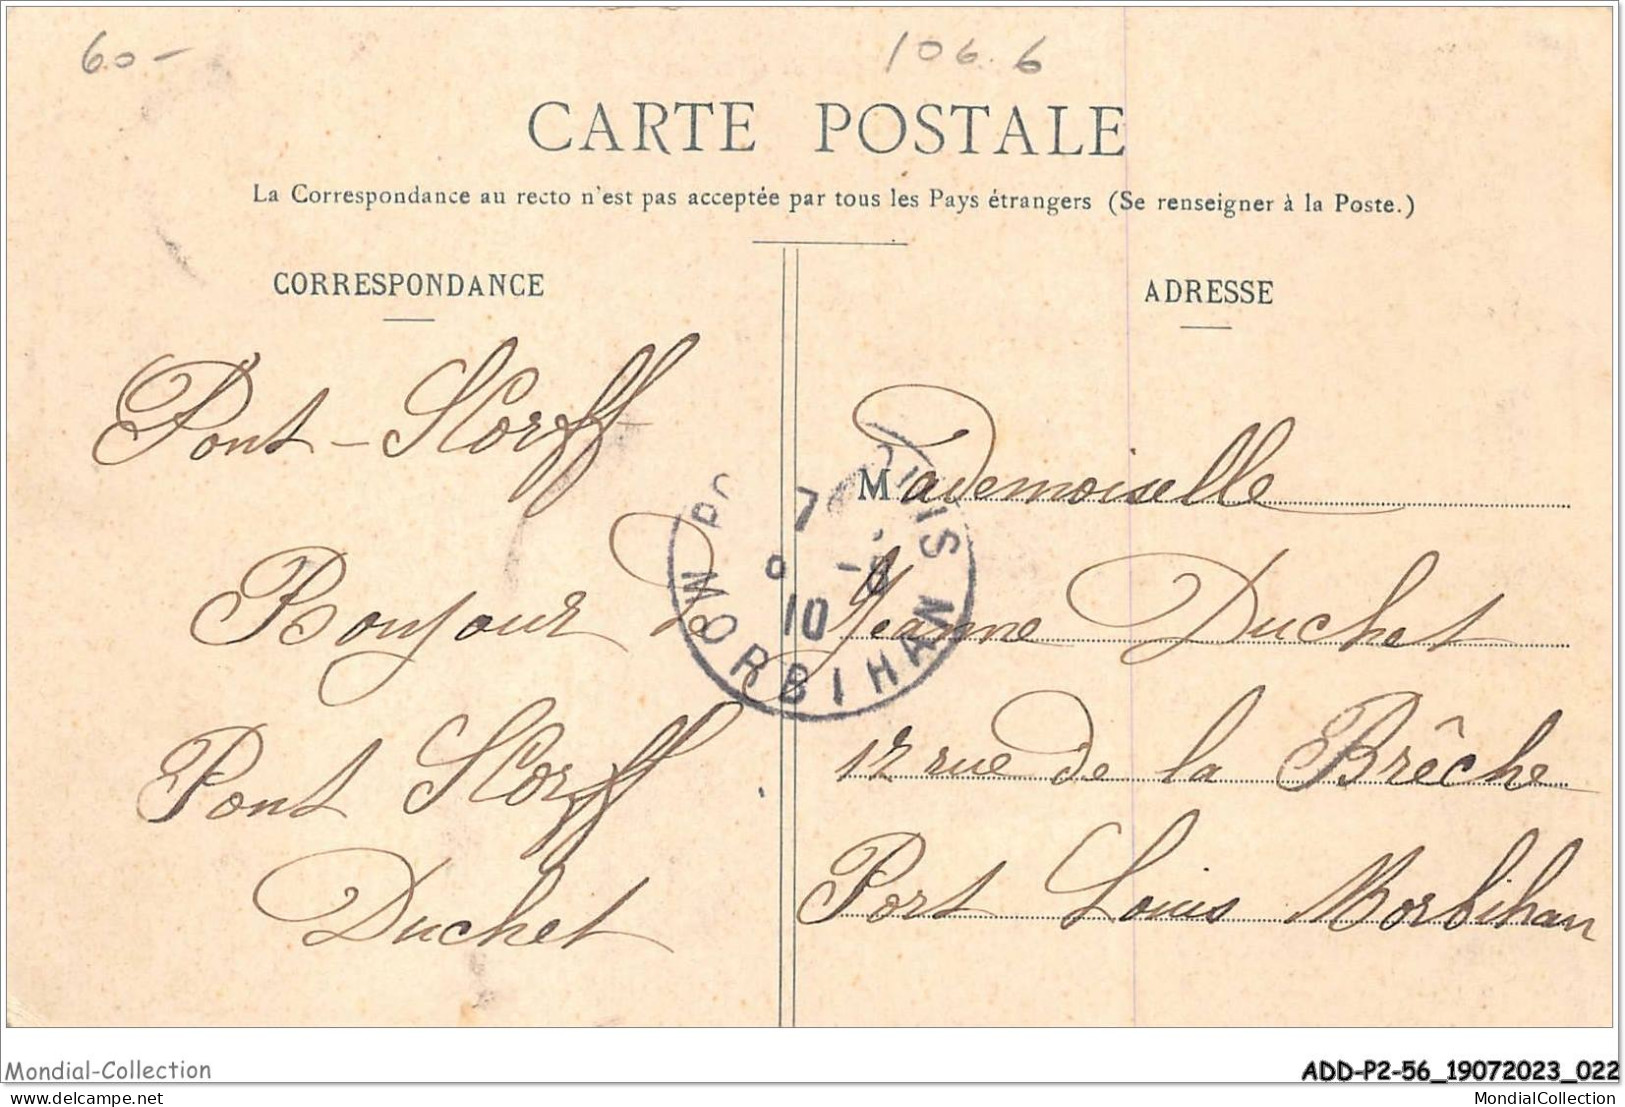 60-
106.6
CARTE POSTALE
La Correspondance au recto n'est pas acceptée par tous les Pays étrangers (Se renseigner à la Poste.)
CORRESPONDANCE
Pont-Scorff
Bonjour de
Pont Scorff
Duchet
ADRESSE
Mademoiselle
Jeanne Duchet
12 rue de la Brêche
Port Louis Morbihan
7
10
MORBIHAN
Mondial-Collection
ADD-P2-56_19072023_022
delcampe.net
MondialCollection